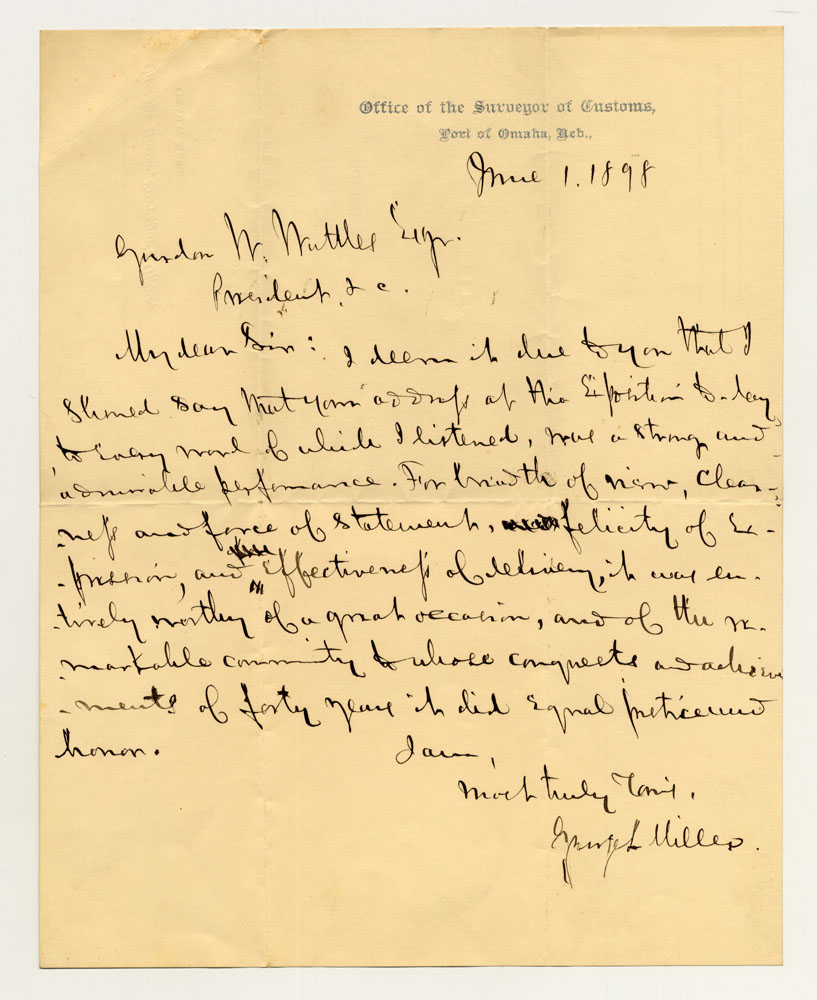 Office of the Surveyor of Customs,
Port of Omaha, Neb.,
June 1. 1898
Gurdon W. Wattles Esqr.
President, &c.
My dear Sir: I deem it due to you that I
should say that your address at the Exposition to-day
to every word of which I listened, was a strong and
admirable performance. For breadth of view, clear-
-ness and force of statement, felicity of Ex-
-pression, and Effectiveness of delivery, it was en-
-tirely worthy of a great occasion, and of the re-
-markable community to whose conquests and achieve
-ments of forty years it did Equal justice and
honor. I am,
most truly Yours,
George L Miller.